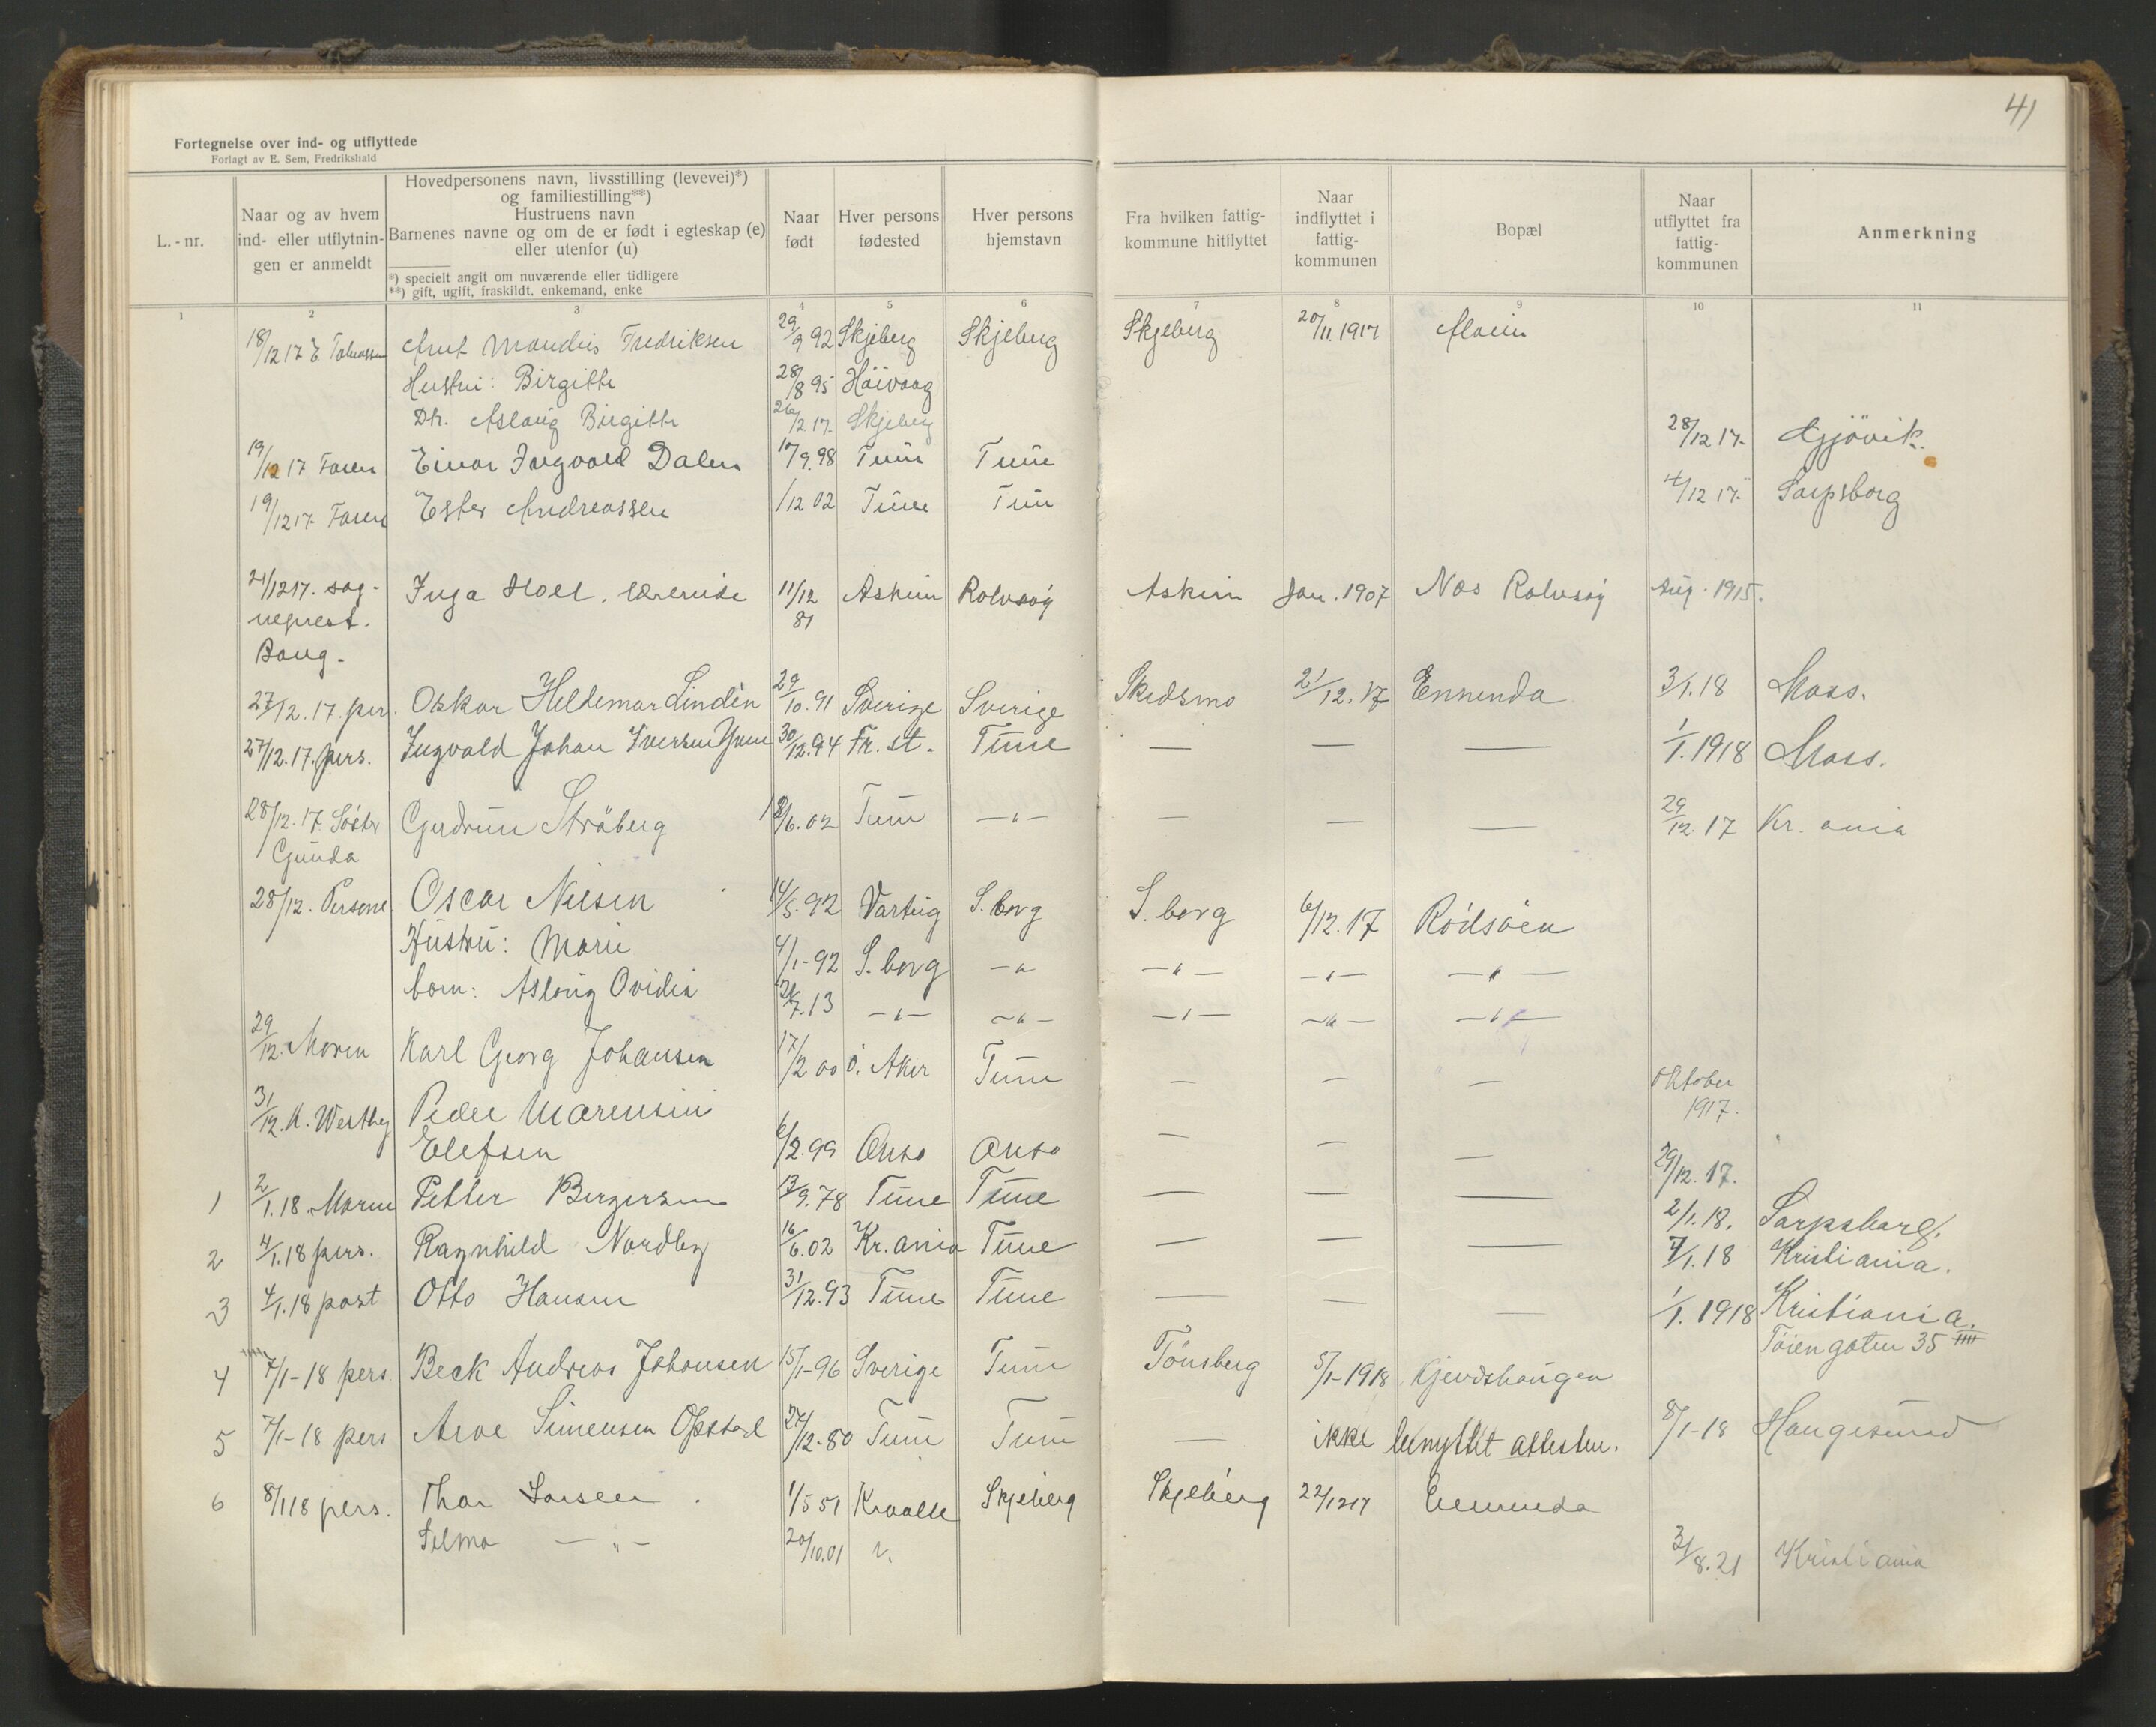 41
Fortegnelse over ind- og utflyttede
Forlagt av E. Sem, Fredrikshald
L.-nr.
Naar og av hvem
ind- eller utflytnin-
gen er anmeldt
Hovedpersonens navn, livsstilling (levevei)*)
og familiestilling**)
Hustruens navn
Barnenes navne og om de er født i egteskap (e)
eller utenfor (u)
*) specielt angit om nuværende eller tidligere
**) gift, ugift, fraskildt, enkemand, enke
Naar
født
Hver persons
fødested
Hver persons
hjemstavn
Fra hvilken fattig-
kommune hitflyttet
Naar
indflyttet i
fattig-
kommunen
Bopæl
Naar
utflyttet fra
fattig-
kommunen
Anmerkning
1 2 3 4 5 6 7 8 9 10 11
18/12 17 E. Fredriksen 29/9 92 Skjeberg Skjeberg Skjeberg 20/11.1917
Hustru: Birgitte 28/8 95 Høivaag
Dtr. Aslaug Birgitte 26/2 17. Skjeberg
19/12 17 Faren Einar Ingvald Dalen 17/9.98 Tune Tune 28/12 17. Gjøvik.
19/12 17. Faren Ester Andreassen /12 02 Tune Tune 4/12 17. Sarpsborg
21/12 17. sog- Inga Hoel. lærerinde 11/12 Askim Rolvsøy Askim Jan. 1907 Nes Rolvsøy Aug. 1915.
neprest. 81
Baug.
27/12.17. pers. Oskar Heldemar Lindén 29/10.91 Sverige Sverige Skedsmo 21/12.17 Ennenda 3/1.18 Moss.
27/12.17. pers. Ingvald Johan Iversen 30/12.94 Fr.st. Tune — — — 1/1.1918 Moss.
28/12.17 Søster Gudrun Strøberg 18/6.02 Tune —"— — — — 29/12.17 Kr.ania
Gunda
28/12. Personl. Oscar Nilsen 14/5.92 Varteig S.borg S.borg 6/12.17 Rødsøen
Hustru: Marie 4/1-92 S.borg —"— —"— —"— —"—
barn: Aslaug Ovidia 21/7.13 —"— —"— —"— —"— —"—
29/12. Moren Karl Georg Johansen 17/2 00 Ø. Aker Tune — — — Oktober
1917.
31/12. A. Westby Peder Marensius
Elefsen 6/2.99 Onsø Onsø — — — 29/12.17.
1 2/1.18 Moren Petter Bergersen 13/9.78 Tune Tune — — — 2/1.18. Sarpsborg.
2 4/1.18 pers. Ragnhild Nordby 16/6.02 Kr.ania Tune — — — 7/1.18 Kristiania.
3 4/1.18 post Otto Hansen 31/12.93 Tune Tune — — — 1/1.1918 Kristiania.
Tøiengaten 35 IIII
4 7/1-18 pers. Beck Andreas Johansen 15/1-96 Sverige Tune Tønsberg 5/1-1918 Gjerdshaugen
5 7/1-18 pers Arve Simensen Opstad 27/12-80 Tune Tune — ikke benyttet attesten. 8/1-18 Haugesund
6 8/1 18 pers. Thor Larsen. 1/5 51 Skjeberg Skjeberg 22/12 17 Ennenda
Selma —"— 20/10.01 3/8.21 Kristiania